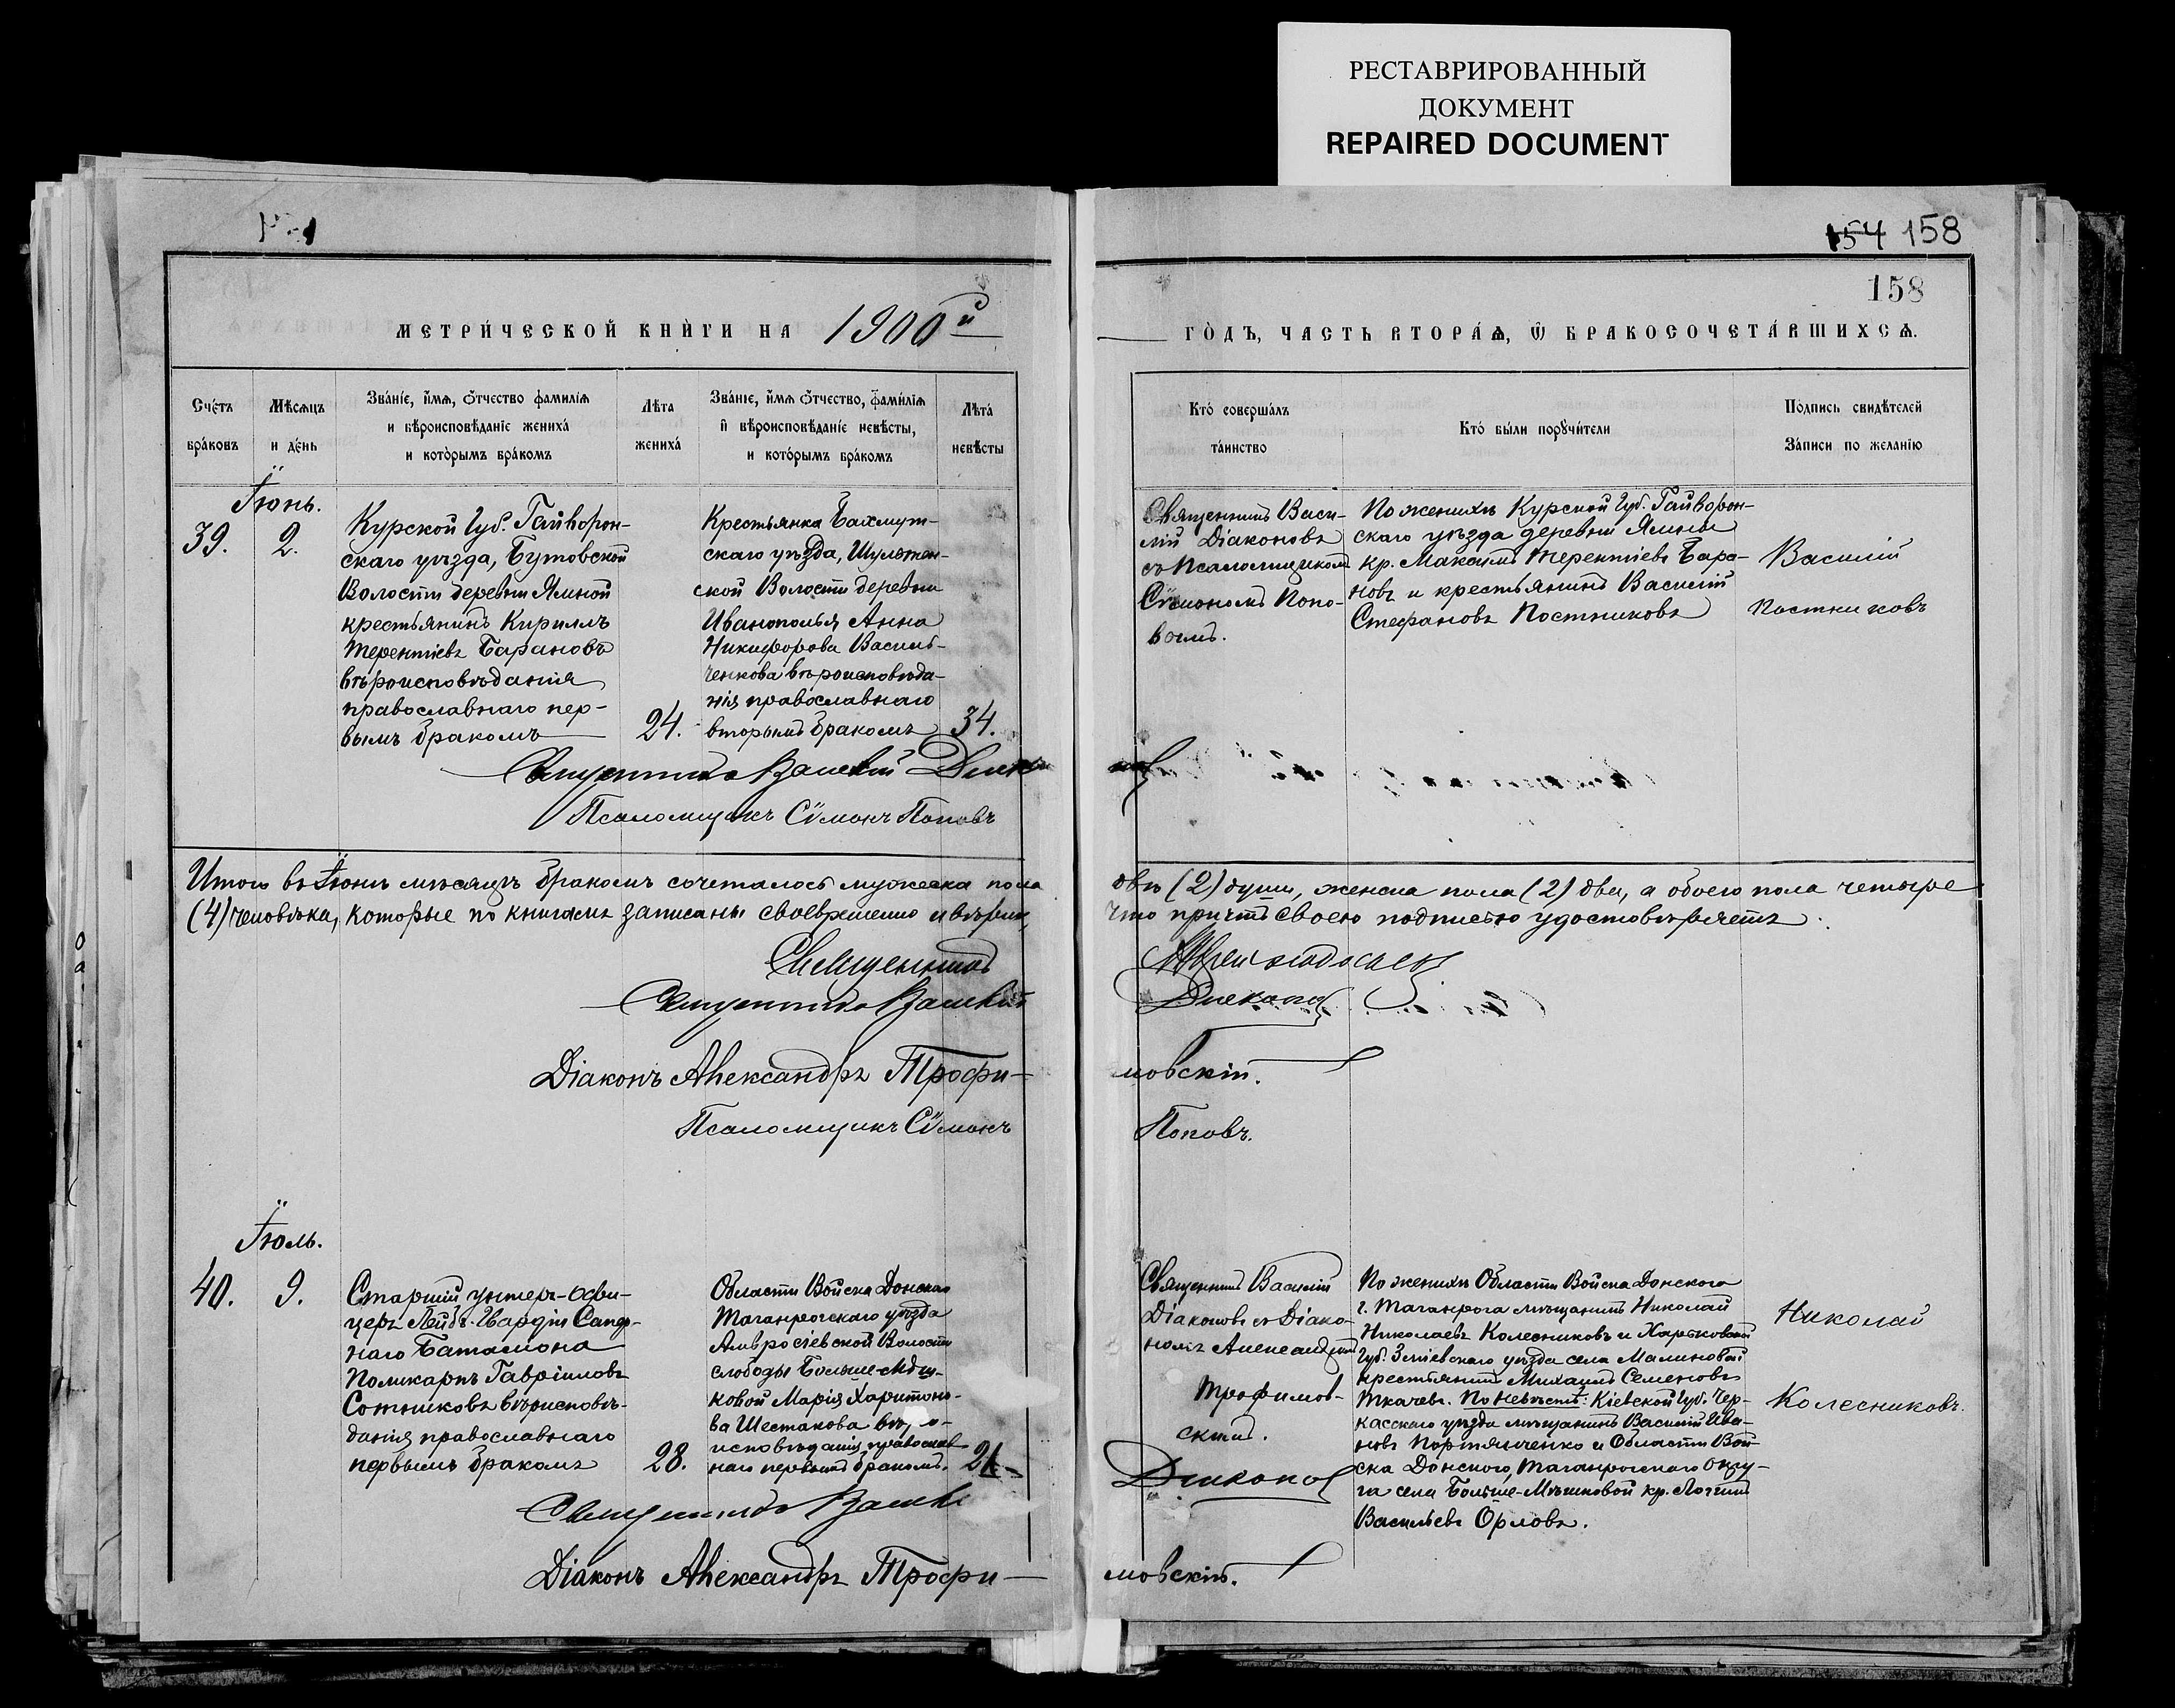 РЕСТАВРИРОВАННЫЙ
ДОКУМЕНТ
REPAIRED DOCUMENT
154 158
158
МЕТРИ́ЧЕСКОЙ КНИ́ГИ НА 1900й
ГО́ДЪ, ЧАСТЬ ВТОРА́Ѧ, Ѿ БРАКОСОЧЕТА́ВШИХСѦ.
Сче́тъ
бра́ковъ
Мѣ́сѧцъ
и де́нь
Зва́нїе, и́мѧ, ѻ́тчество фами́лїѧ
и вѣроисповѣ́данїе жениха́
и кото́рымъ бра́комъ
Лѣ́та
жениха́
Зва́нїе, и́мѧ ѻ́тчество, фами́лїѧ
и вѣроисповѣ́данїе невѣ́сты,
и кото́рымъ бра́комъ
Лѣта́
невѣ́сты
Кто́ соверша́лъ
та́инство
Кто́ бы́ли порꙋчи́тели
По́дпись свидѣ́телей
За́писи по жела́нїю
Їюнь.
39. 2.
Курской Губ. Гайворон-
скаго уѣзда, Бутовской
Волости деревни Ямной
крестьянинъ Кириллъ
Терентіевъ Барановъ
вѣроисповѣданія
православнаго пер-
вымъ бракомъ
24.
Крестьянка Бахмут-
скаго уѣзда,
ской Волости деревни
Иванополья Анна
Никифорова Василь-
ченкова вѣроисповѣда-
нія православнаго
вторымъ бракомъ
34.
Священникъ Васи-
лій Діаконовъ
съ Псаломщикомъ
Сѵмономъ Попо-
вымъ.
По женихѣ Курской Губ. Гайворон-
скаго уѣзда деревни Ямны
кр. Максимъ Терентіевъ Бара-
новъ и крестьянинъ Василій
Стефановъ Постниковъ
Василій
Постниковъ
Священникъ Василій Діако
новъ
Псаломщикъ Сѵмонъ Поповъ
Итого въ Їюнѣ мѣсяцѣ бракомъ сочеталось мужеска пола
двѣ (2) души, женска пола (2) двѣ, а обоего пола четыре
(4) человѣка, которые по книгамъ записаны своевременно и вѣрно,
что причтъ своею подписью удостовѣряетъ.
Священникъ
Священникъ Василій
Діаконовъ
Діаконъ Александръ Трофи-
мовскій.
Псаломщикъ Сѵмонъ
Поповъ.
Їюль.
40. 9.
Старшій унтеръ-офи-
церъ Лейбъ-Гвардіи Сапер-
наго Баталіона
Поликарпъ Гавріиловъ
Сотниковъ вѣроисповѣ-
данія православнаго
первымъ бракомъ
28.
Области Войска Донского
Таганрогскаго уѣзда
Амвросіевской Волости
слободы Больше-Мѣш-
ковой Марія Харитоно-
ва Шестакова вѣро-
исповѣданія православ-
наго первымъ бракомъ.
21
Священникъ Василій
Діаконовъ съ Діако-
номъ Александромъ
Трофимов-
скимъ.
По женихѣ Области Войска Донского
г. Таганрога мѣщанинъ Николай
Николаевъ Колесниковъ и Харьковской
Губ. Зміевскаго уѣзда села Малиновой
крестьянинъ Михаилъ Семеновъ
Ткачевъ. По невѣстѣ: Кіевской Губ. Чер-
касскаго уѣзда мѣщанинъ Василій Ива-
новъ Портянченко и Области Вой-
ска Донского, Таганрогскаго окру-
га села Больше-Мѣшковой кр. Логинъ
Васильевъ Орловъ.
Николай
Колесниковъ.
Священникъ Василій
Діаконовъ
Діаконъ Александръ Трофи-
мовскій.